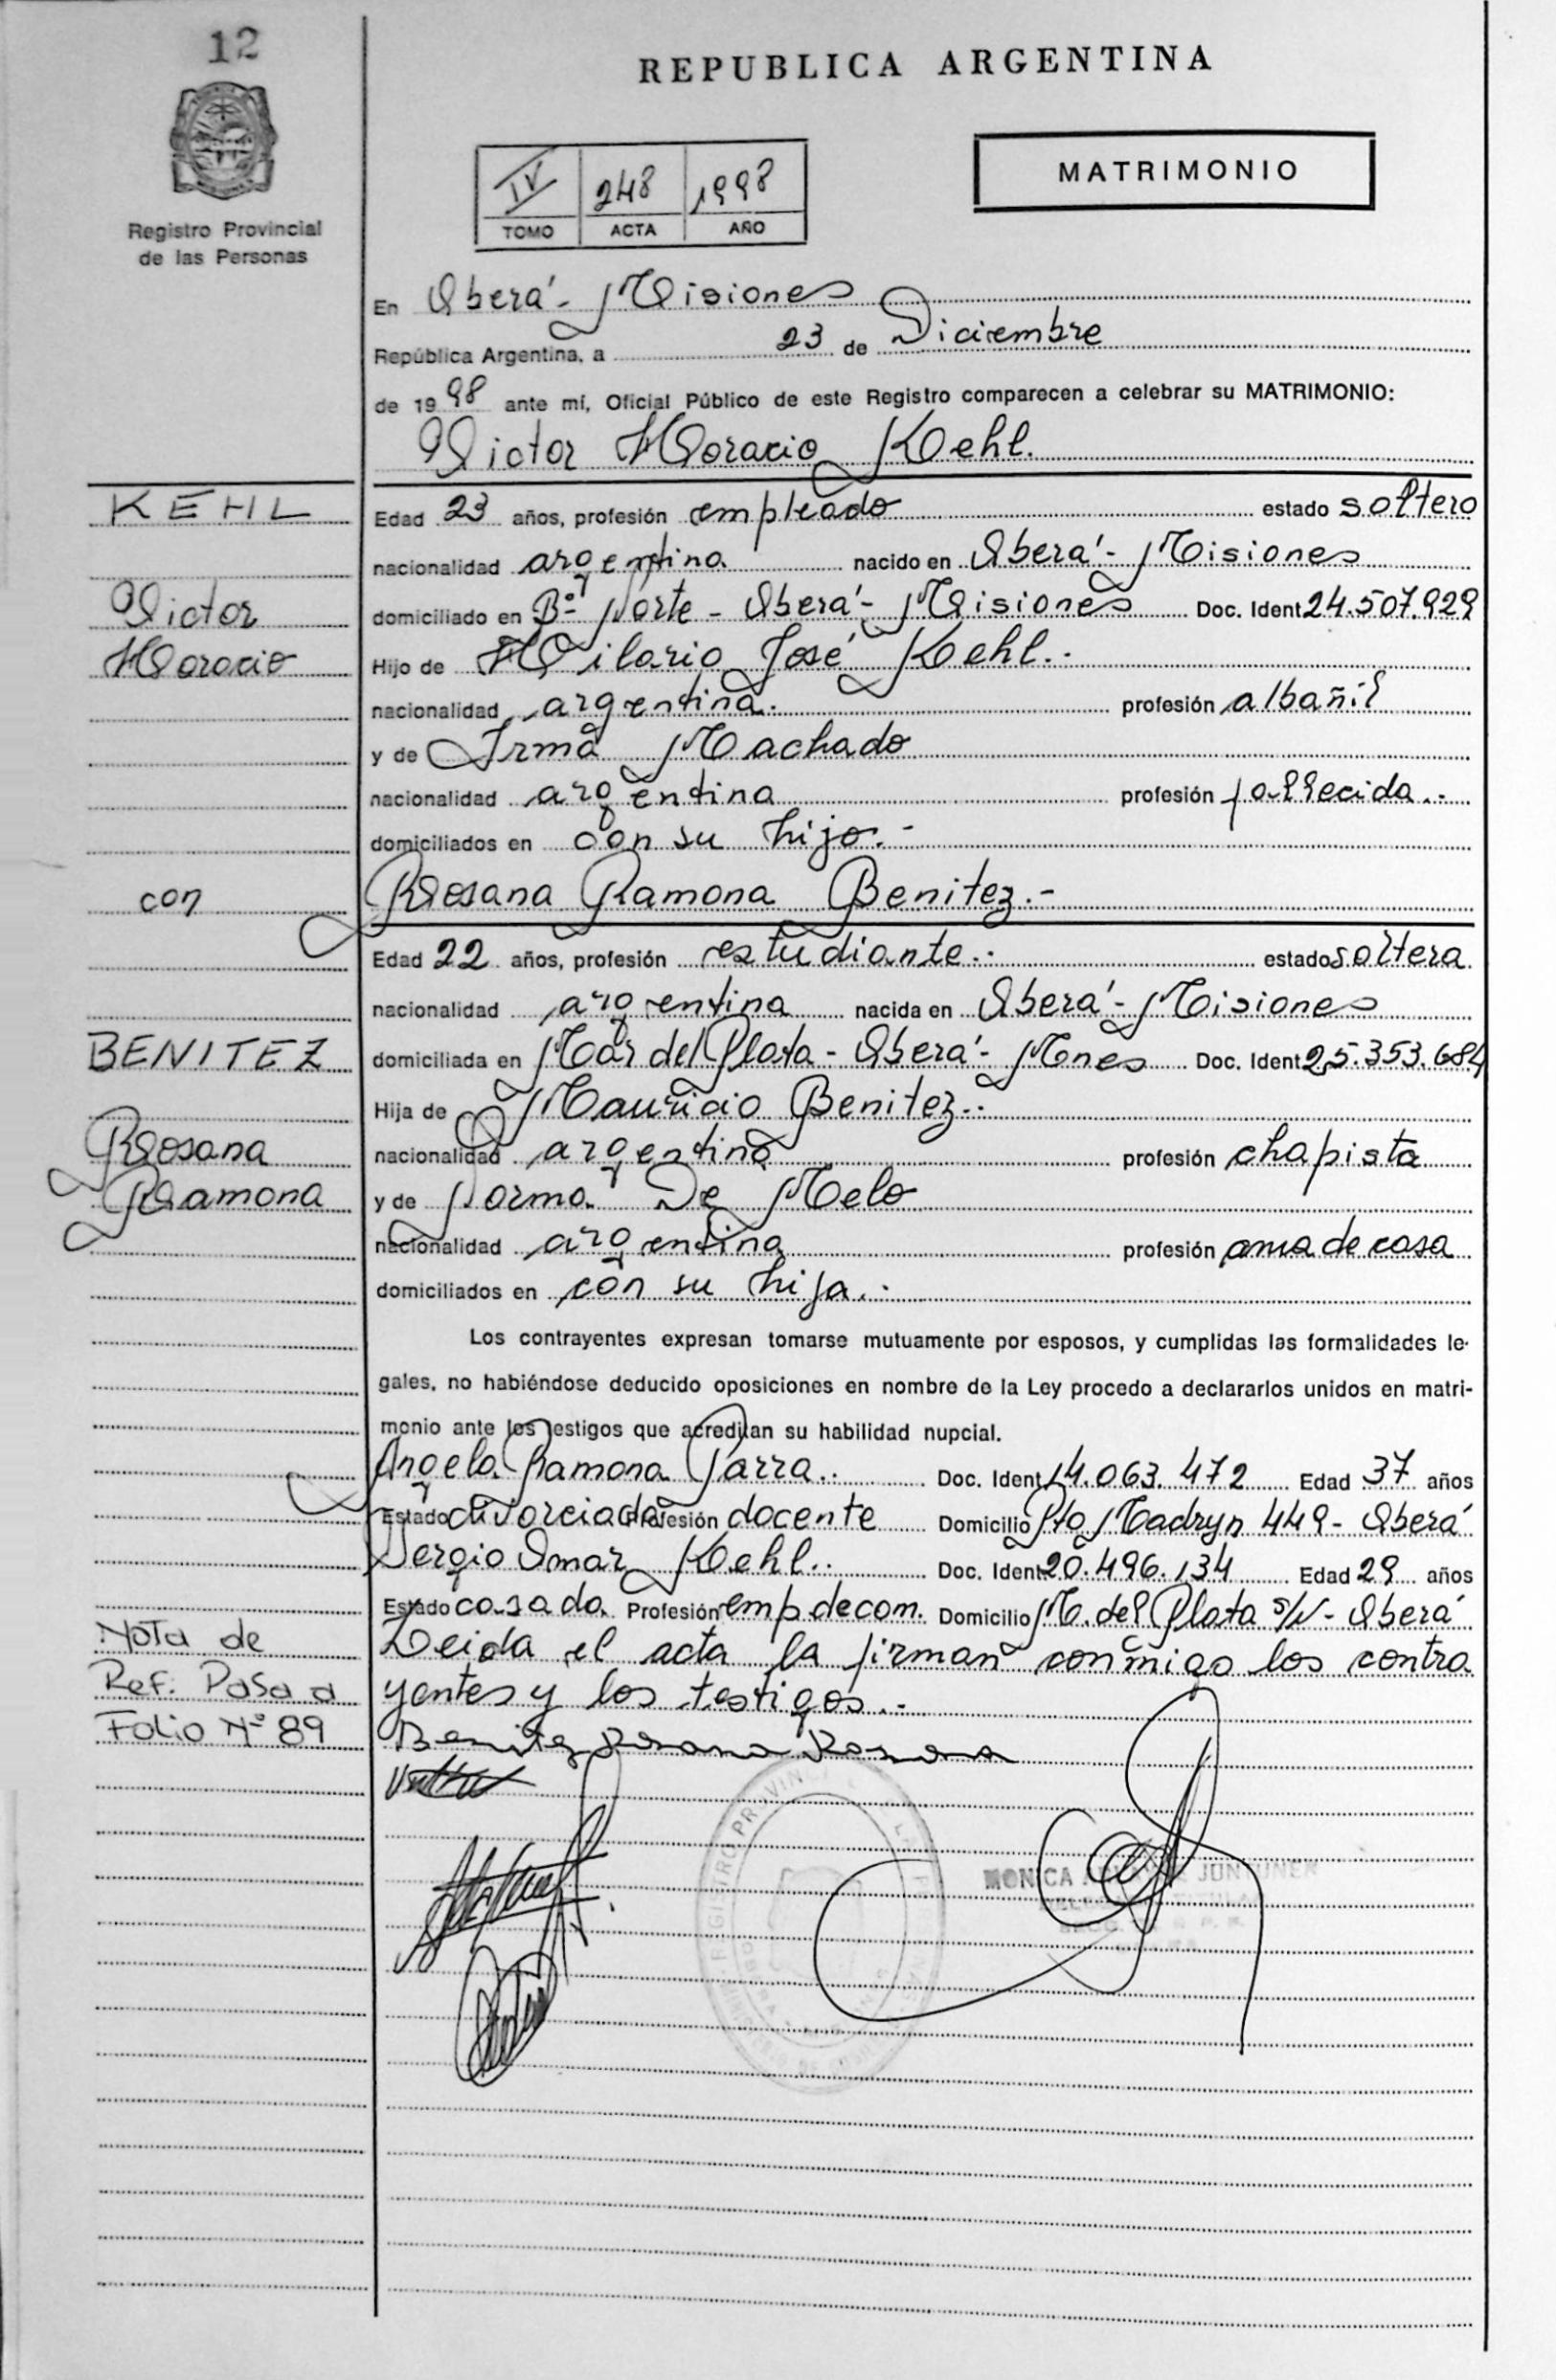 12
REPUBLICA ARGENTINA
MATRIMONIO
IV 248 1998
TOMO ACTA AÑO
Registro Provincial
de las Personas
En Oberá - Misiones
República Argentina, a 23 de Diciembre
de 1998 ante mí, Oficial Público de este Registro comparecen a celebrar su MATRIMONIO:
Victor Horacio Kehl.
KEHL
Edad 23 años, profesión empleado estado soltero
nacionalidad argentina nacido en Oberá - Misiones
Victor
domiciliado en Bº Norte - Oberá - Misiones Doc. Ident 24.507.929
Horacio
Hijo de Hilario José Kehl.-
nacionalidad argentina.- profesión albañil
y de Irma Machado
nacionalidad argentina profesión fallecida.-
domiciliados en con su hijo.-
con
Rosana Ramona Benitez.-
Edad 22 años, profesión estudiante.- estado soltera
nacionalidad argentina nacida en Oberá - Misiones
BENITEZ
domiciliada en Mar del Plata - Oberá - Mnes Doc. Ident 25.353.684
Hija de Mauricio Benitez.-
Rosana
nacionalidad argentina profesión chapista
Ramona
y de Norma De Melo
nacionalidad argentina profesión ama de casa
domiciliados en con su hija.-
Los contrayentes expresan tomarse mutuamente por esposos, y cumplidas las formalidades le-
gales, no habiéndose deducido oposiciones en nombre de la Ley procedo a declararlos unidos en matri-
monio ante los testigos que acreditan su habilidad nupcial.
Angela Ramona Parra.- Doc. Ident 14.063.472 Edad 37 años
Estado divorciada Profesión docente Domicilio Pto Madryn 449 - Oberá
Sergio Omar Kehl.- Doc. Ident 20.496.134 Edad 29 años
Estado casado Profesión emp de com. Domicilio M. del Plata s/N - Oberá
Nota de
Leida el acta la firman conmigo los contra
Ref. Pasa a
yentes y los testigos.-
Folio Nº 89
Benitez Rosana Ramona
MONICA JUNGUNER